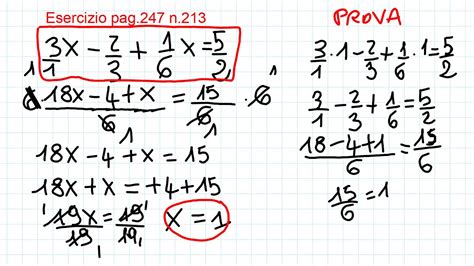 Esercizio pag.247 n.213
3/1 x - 2/3 + 1/6 x = 5/2
1 6 · (18x - 4 + x)/6 1 = 15/6 · 6 1
18x - 4 + x = 15
18x + x = +4 + 15
1 19x/19 1 = 19 1/19 1 x = 1
PROVA
3/1 · 1 - 2/3 + 1/6 · 1 = 5/2
3/1 - 2/3 + 1/6 = 5/2
(18 - 4 + 1)/6 = 15/6
15/6 = 1